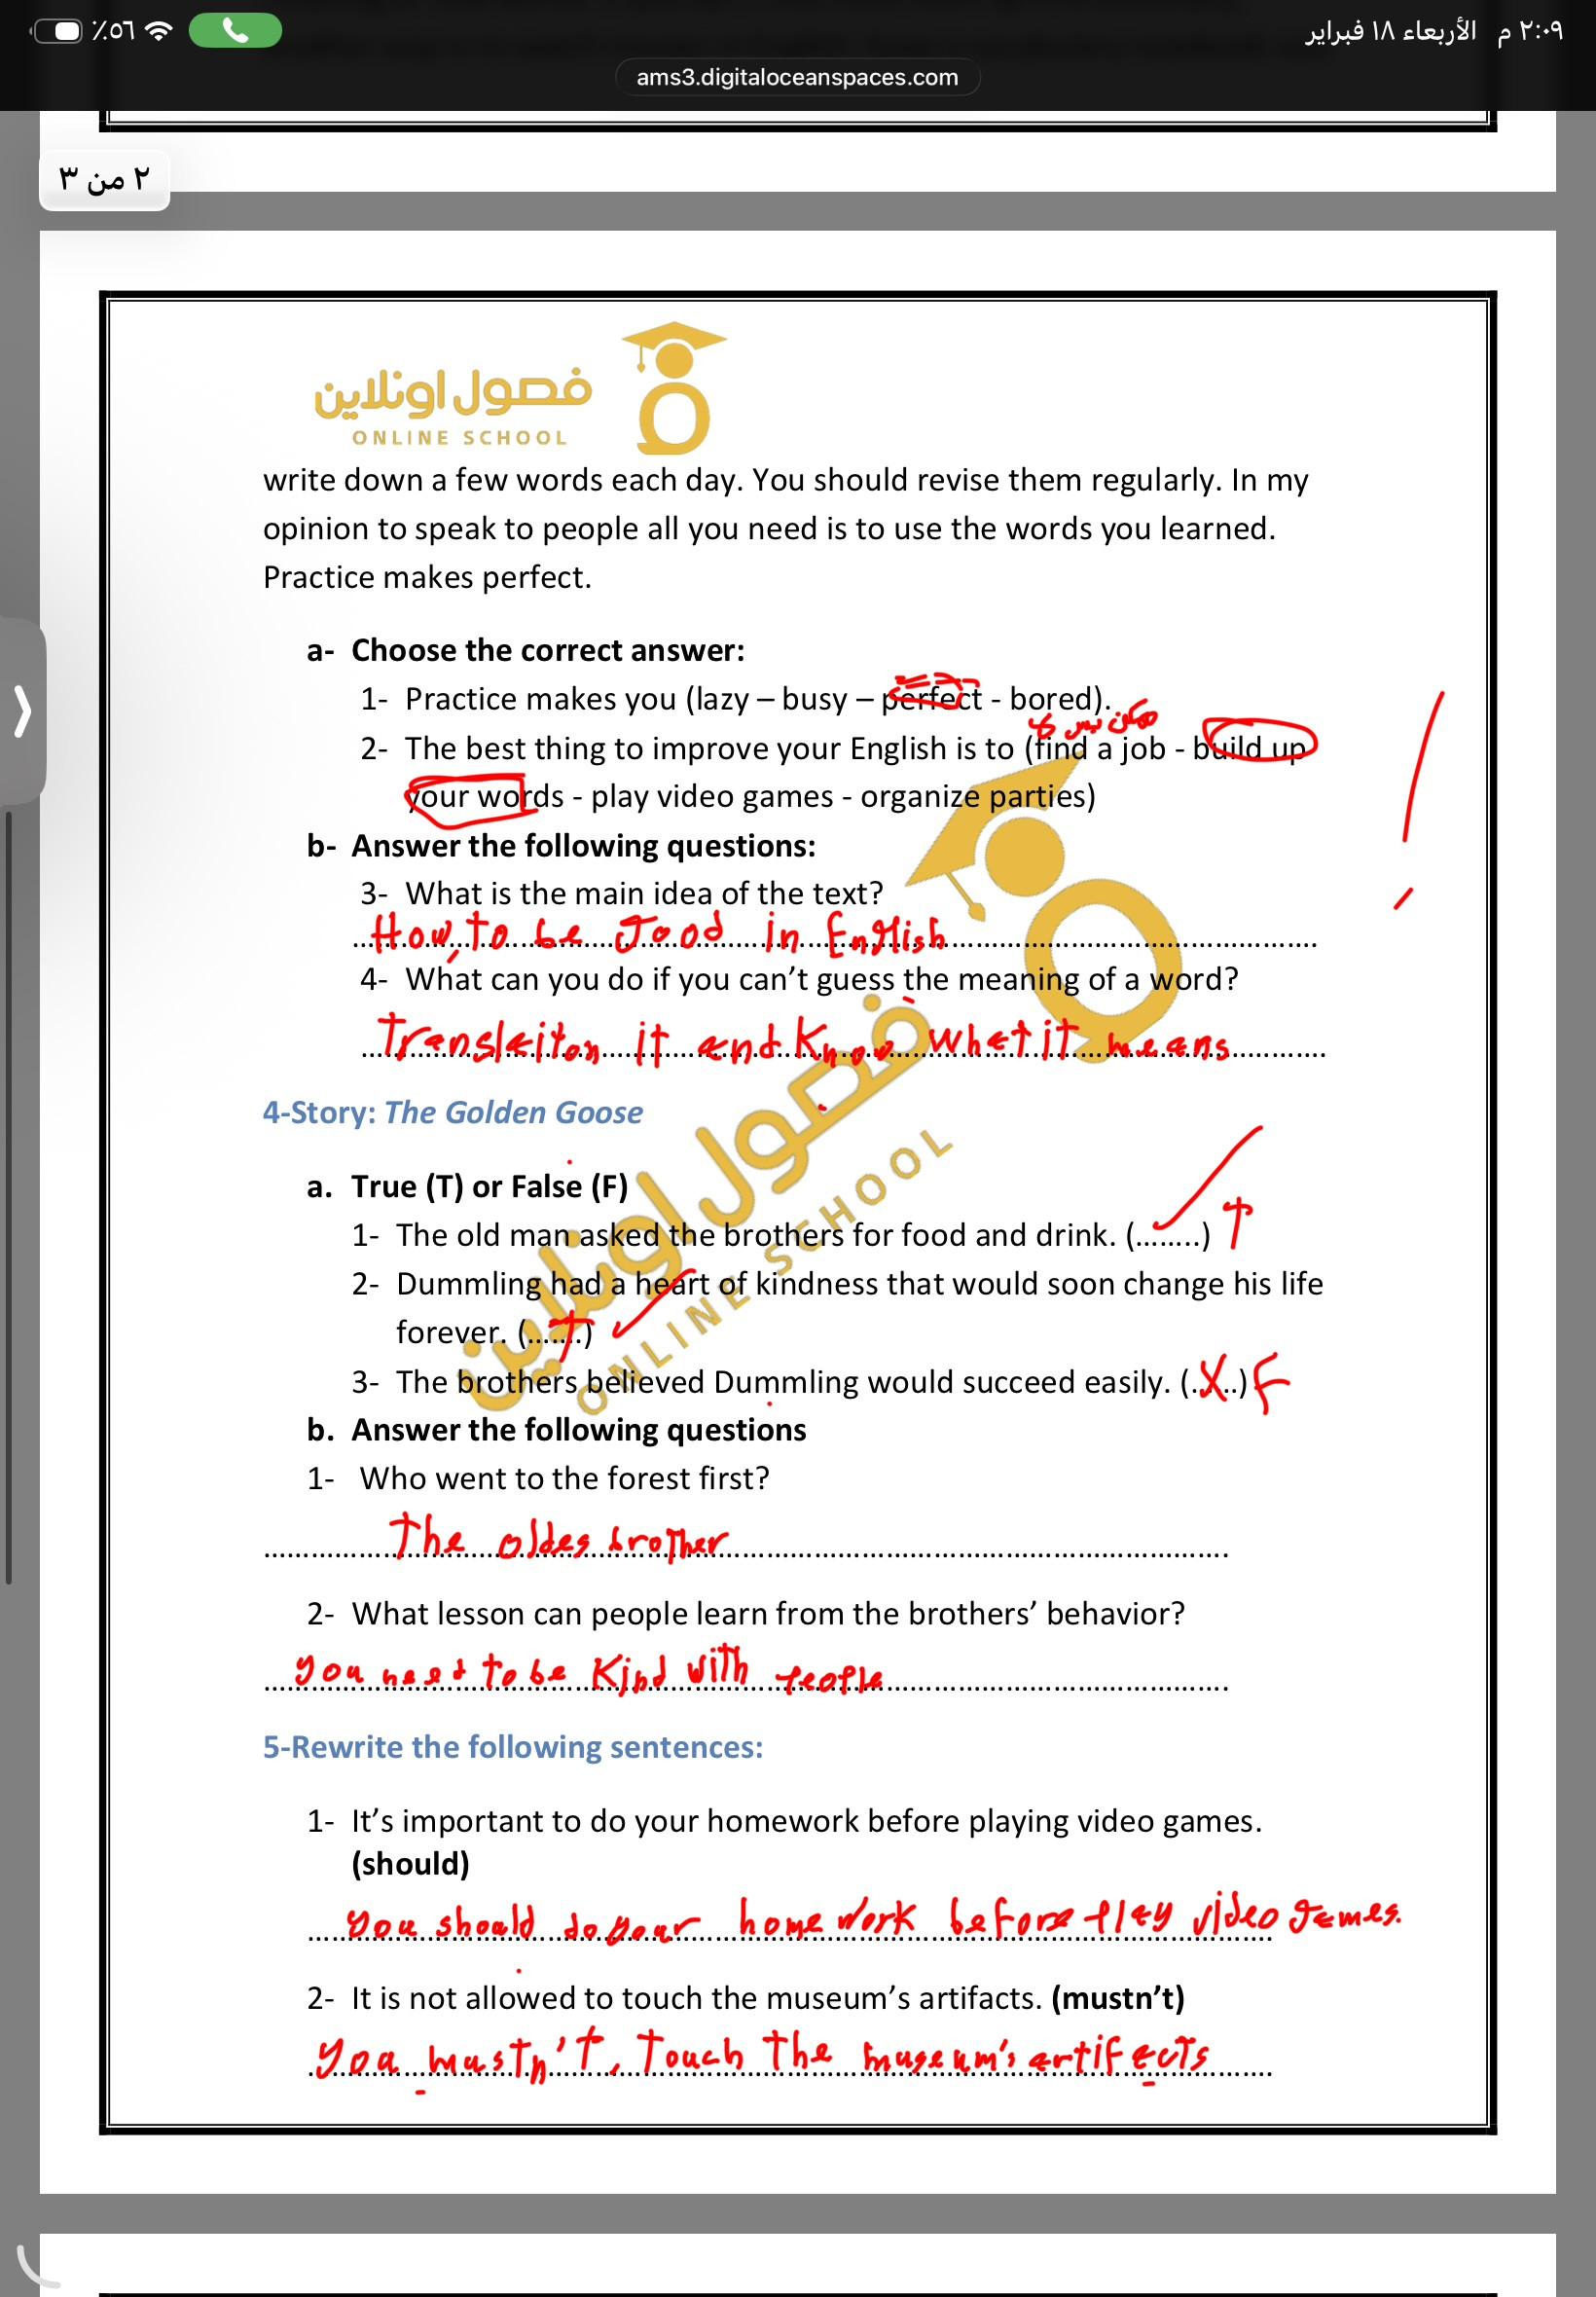 ٪٥٦
٢:٠٩ م الأربعاء ١٨ فبراير
ams3.digitaloceanspaces.com
٢ من ٣
فصول اونلاين
ONLINE SCHOOL
write down a few words each day. You should revise them regularly. In my
opinion to speak to people all you need is to use the words you learned.
Practice makes perfect.
a- Choose the correct answer:
1- Practice makes you (lazy – busy – perfect - bored).
2- The best thing to improve your English is to (find a job - build up
your words - play video games - organize parties)
b- Answer the following questions:
3- What is the main idea of the text?
How to be good in English
4- What can you do if you can't guess the meaning of a word?
Transleiton it and Know what it means
4-Story: The Golden Goose
a. True (T) or False (F)
1- The old man asked the brothers for food and drink. (........) T
2- Dummling had a heart of kindness that would soon change his life
forever. (...T...)
3- The brothers believed Dummling would succeed easily. (..X..) F
b. Answer the following questions
1- Who went to the forest first?
The oldes brother
2- What lesson can people learn from the brothers' behavior?
you need to be Kind with people
5-Rewrite the following sentences:
1- It's important to do your homework before playing video games.
(should)
you should do your home work before play video games.
2- It is not allowed to touch the museum's artifacts. (mustn't)
you mustn't touch the museum's artifacts
فصول اونلاين
ONLINE SCHOOL